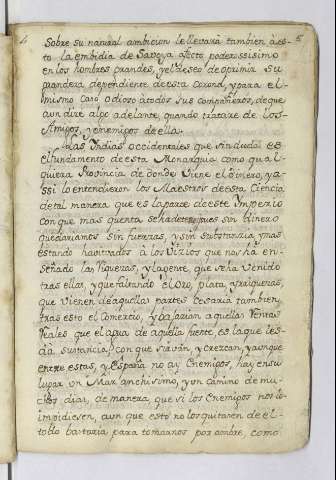 4 5
Sobre su natural ambicion le llevarà tambien à es-
to la embidia de Saboya afecto poderosissimo
en los hombres grandes, y el deseo de oprimir su
grandeza dependiente de esta Corona, y para el
mismo caso odioso à todos sus compañeros, de que
aun dire algo adelante quando tratare de los
Amigos, y enemigos de ella.
Las Yndias occidentales que sin duda es
el fundamento de esta Monarquia como qual-
quiera Provincia de donde viene el dinero, y a-
ssi lo entendieron los Maestros de esta Ciencia
de tal manera que es la parte de este Imperio
con que mas quenta se ha de tener, pues sin dinero
quedariamos sin fuerzas, y sin substancia y mas
estando habituados à los Vizios que nos ha en-
señado las riquezas, y la gente, que se ha venido
tras ellas, y que faltando el Oro, plata, y riquezas
que vienen de aquellas partes cesaria tambien
tras esto el Comercio, y baxarian aquellas Rentas
Reales que el agua de aquella fuente, es la que les
da sustancia, con que sirvan, y crezcan, y aunque
entre estas, y España no ay Enemigos, hay en su
lugar un Mar anchisimo, y un camino de mu-
chos dias, de manera, que si los Enemigos nos lo
impidiesen, aun que esto no los quitasen de el
todo bastaria para tomarnos por ambre, como